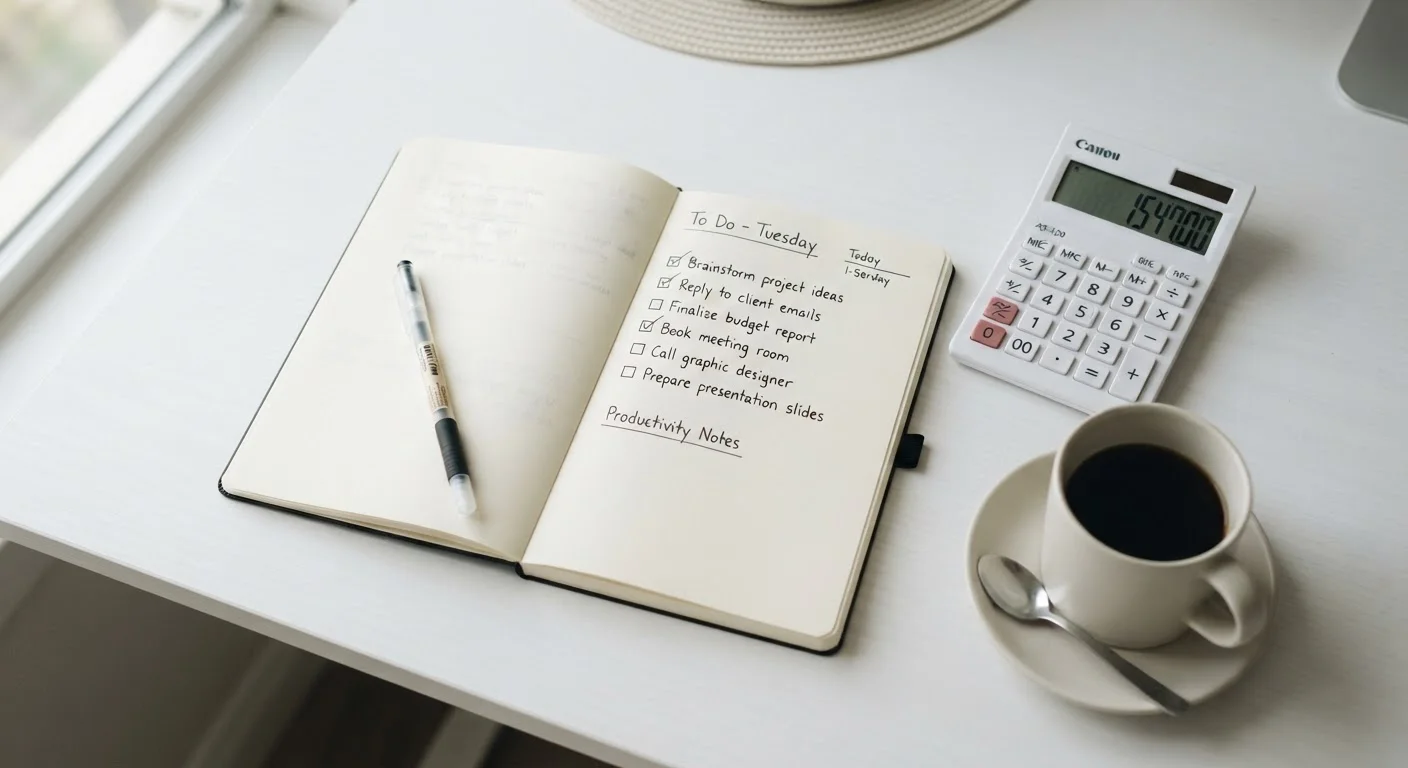 To Do - Tuesday
Today
☑ Brainstorm project ideas
☑ Reply to client emails
☐ Finalize budget report
☑ Book meeting room
☐ Call graphic designer
☐ Prepare presentation slides
Productivity Notes
Canon
154700
7 8 9 ÷
4 5 6 ×
1 2 3 −
0 00 . = +